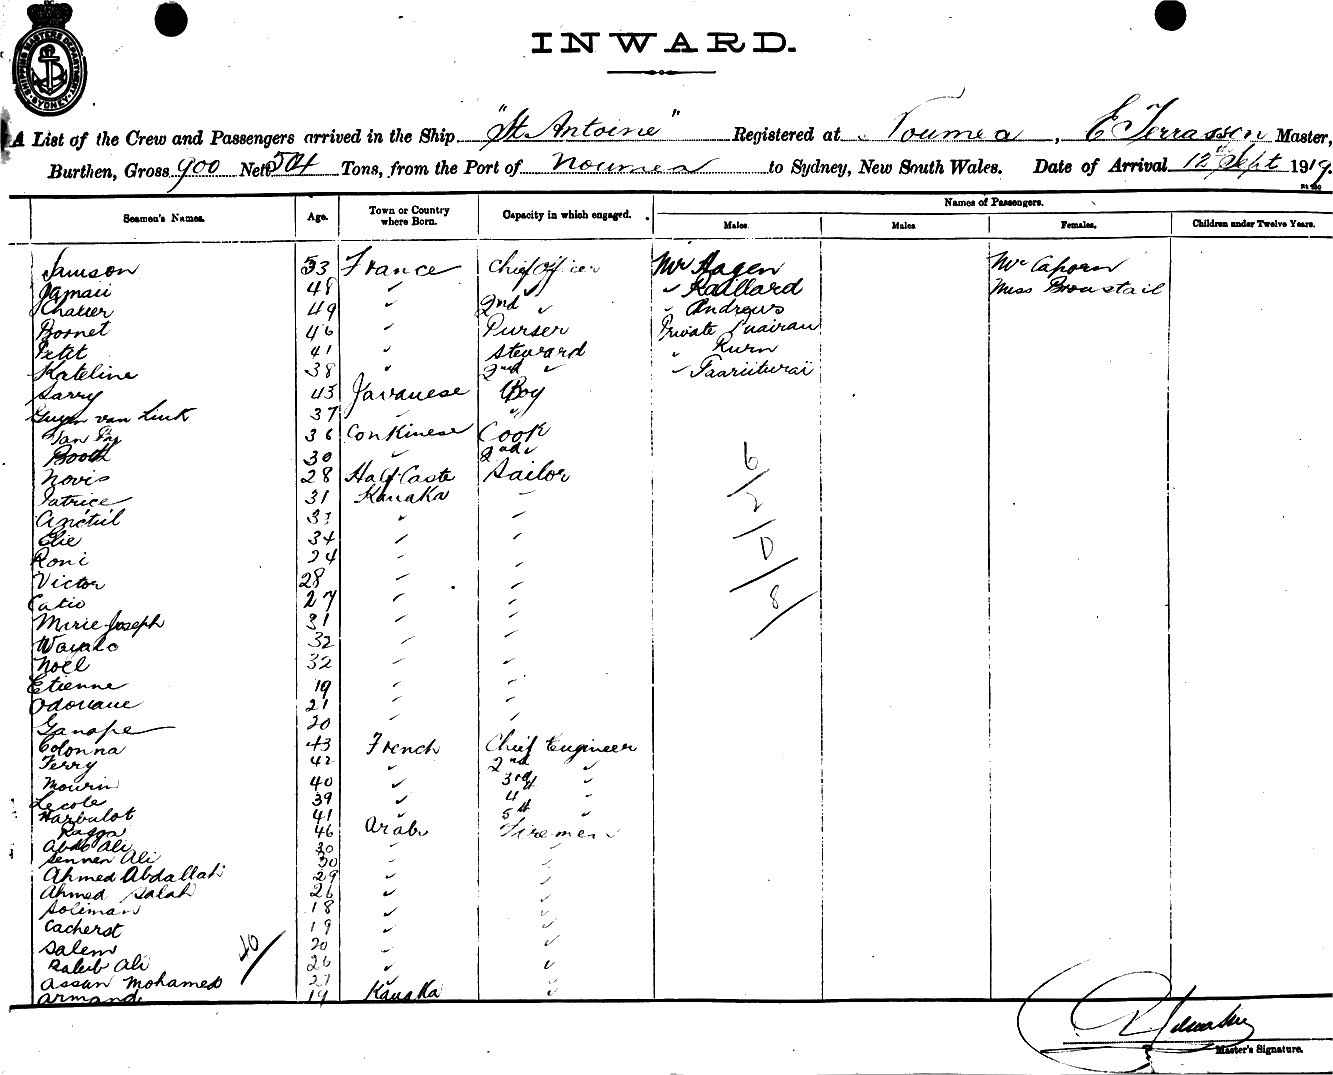 SHIPPING MASTERS DEPARTMENT SYDNEY
INWARD.
A List of the Crew and Passengers arrived in the Ship "St Antoine" Registered at Noumea, E Terrasson Master,
Burthen, Gross 900 Nett 504 Tons, from the Port of Noumea to Sydney, New South Wales. Date of Arrival 12th Sept 1919.
Seamen's Names. Age. Town or Country where Born. Capacity in which engaged. Names of Passengers.
Males. Males Females. Children under Twelve Years.
53 France Chief Officer Mr Hagen
48 " " " Raillard Miss
Chalier 49 " 2nd " " Andrews
Bornet 46 " Purser Private
Petit 41 " Steward "
Kateline 38 " 2nd "
Sarry 43 Javanese Boy
37 " "
36 Cook
Booth 30 " 2nd "
Novis 28 Half Caste Sailor
Patrice 31 Kanaka "
" "
Elie 34 " "
Roni 24 " "
Victor 28 " "
Catio 27 " "
Marie Joseph 31 " "
32 " "
Noel 32 " "
Etienne 19 " "
21 " "
Ganape 20 " "
Colonna 43 French Chief Engineer
Terry 42 " 2nd "
Mourin 40 " 3rd "
Lecole 39 " 4th "
Harbulot 41 " 5th "
Ragga 46 Arab Firemen
Abdo Ali 30 " "
Sennen Ali 30 " "
Ahmed Abdallah 29 " "
Ahmed Salah 26 " "
Soliman 18 " "
Cacherst 19 " "
Salem 20 " "
Saleb Ali 26 " "
Assan Mohamed 27 " "
Armand 19 Kanaka "
40
6
2
D
8
Master's Signature.